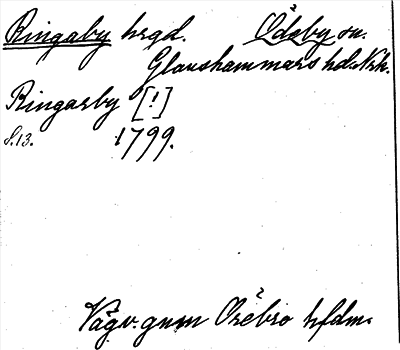 Ringaby hrgd. Ödeby sn.
Glanshammars hd. Nrk.
Ringarby [!]
S.13. 1799.
Vägv. gnm Örebro hfdm.